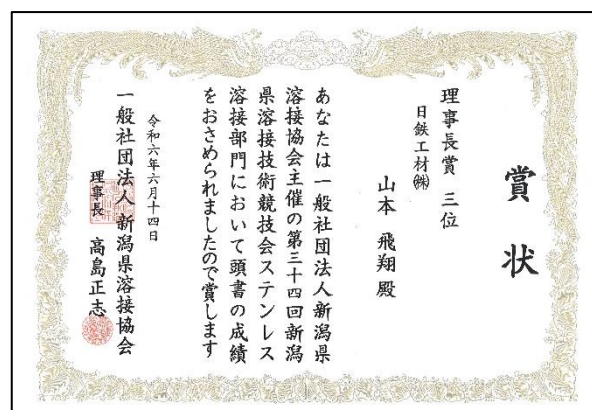 賞状
理事長賞 三位
日鉄工材㈱
山本 飛翔 殿
あなたは一般社団法人新潟県
溶接協会主催の第三十四回新潟
県溶接技術競技会ステンレス
溶接部門において頭書の成績
をおさめられましたので賞します
令和六年六月十四日
一般社団法人 新潟県溶接協会
理事長 高島正志